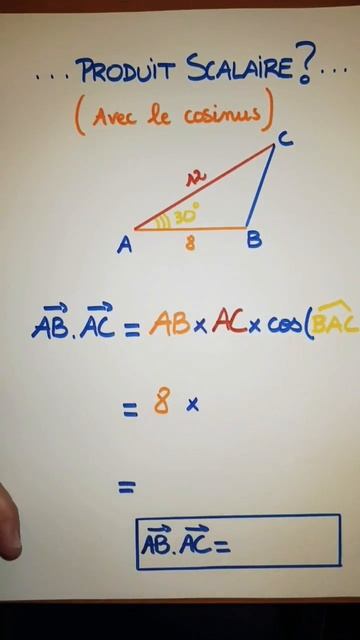 ... PRODUIT SCALAIRE? ...
(Avec le cosinus)
C
12
30°
A
8
B
AB. AC = AB x AC x cos(BAC
= 8 x
=
AB. AC =